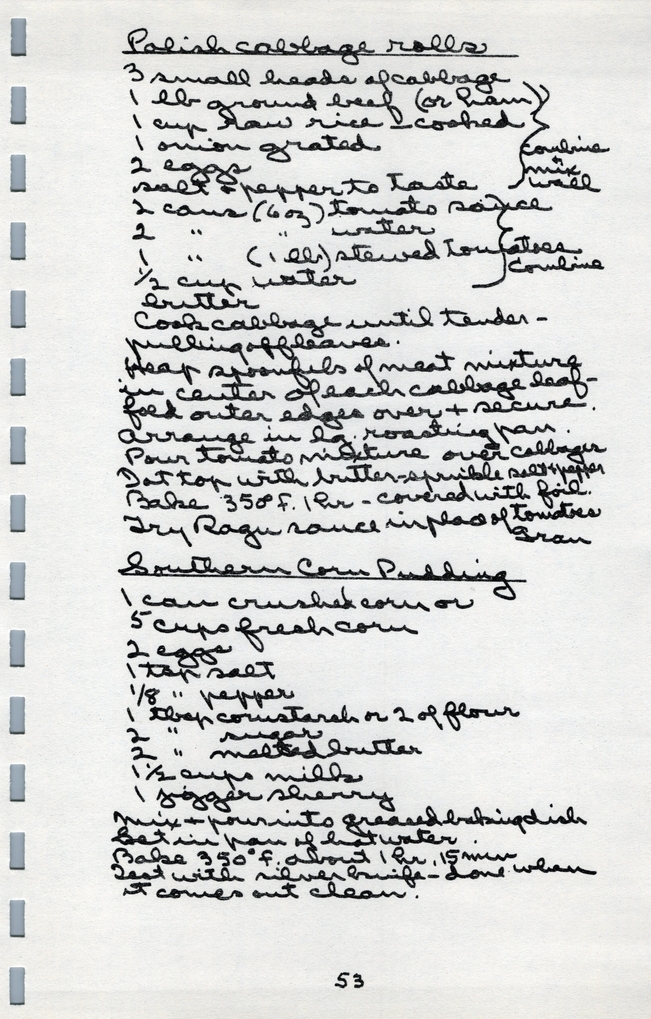 Polish cabbage rolls
3 small heads of cabbage
1 lb ground beef (or ham)
1 cup raw rice - cooked
1 onion grated
2 eggs
salt + pepper to taste
combine
+
mix
well
2 cans (6 oz) tomato sauce
2 " " water
1 " (1 lb) stewed tomatoes
1/2 cup water
combine
butter
Cook cabbage until tender -
pulling off leaves.
Heap spoonfuls of meat mixture
in center of each cabbage leaf -
fold outer edges over + secure.
Arrange in lg. roasting pan.
Pour tomato mixture over cabbages
Dot top with butter - sprinkle salt + pepper
Bake 350° f. 1 hr - covered with foil.
Try Ragu sauce in place of tomatoes
Fran
Southern Corn Pudding
1 can crushed corn or
5 cups fresh corn
2 eggs
1 tsp salt
1/8 " pepper
1 tbsp cornstarch or 2 of flour
2 " sugar
2 " melted butter
1 1/2 cups milk
1 jigger sherry
Mix + pour into greased baking dish
Set in pan of hot water.
Bake 350° f. about 1 hr. 15 min
Test with silver knife - done when
it comes out clean.
53